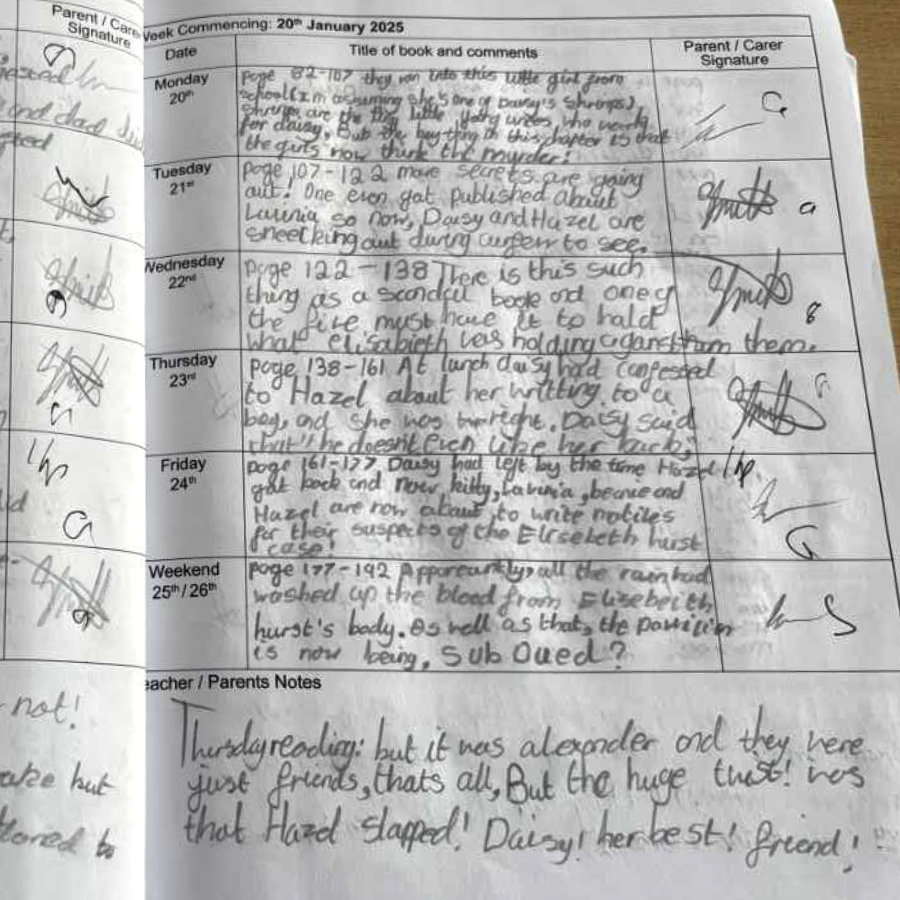 Parent / Care
Signature
and dad
not!
but
to
Week Commencing: 20th January 2025
Date
Title of book and comments
Parent / Carer
Signature
Monday
20th
page 82-107 they ran into this little girl from
school (I'm assuming she's one of Daisy's shrimps)
shrimps are the little young who
for daisy. But the big thing in this chapter is that
the girls now think the murder!
Tuesday
21st
page 107-122 more secrets are going
out! One even got published about
Lavinia so now, Daisy and Hazel are
sneecking out during curfew to see.
Wednesday
22nd
page 122-138 There is this such
thing as a scandel book and one of
the five must have it to hald
what elisabieth was holding against from them.
Thursday
23rd
page 138-161 At lunch daisy had confessed
to Hazel about her writting to a
boy, and she was right. Daisy said
that "he doesn't even like her back;
Friday
24th
page 161-177 Daisy had left by the time Hazel
got back and now kitty, Lavinia, beanie and
Hazel are now about to write notiles
for their suspects of the Elisebeth hurst
case!
Weekend
25th / 26th
page 177-192 Apparcantly, all the rain had
washed up the blood from Elisebeith
hurst's body. as well as that, the pavilion
is now being, Sub Oued?
eacher / Parents Notes
Thursday reading: but it was alexander and they were
just friends, thats all, But the huge twist! was
that Hazel slapped! Daisy! her best! friend!